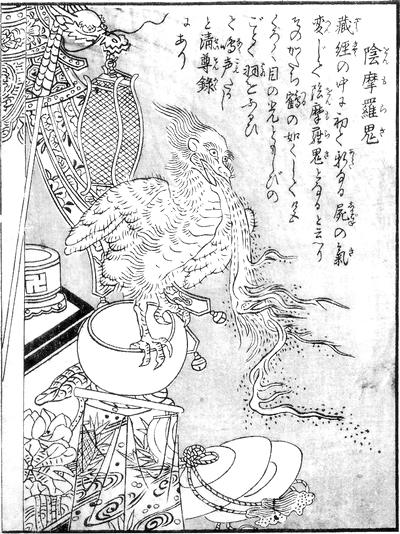 陰摩羅鬼
藏経の中に初て新なる屍の氣
変じて陰摩羅鬼となると云へり
そのかたち鶴の如くして色
くろく目の光ともしびの
ごとく羽をふるひ
て鳴声たかし
と清尊錄
にあり